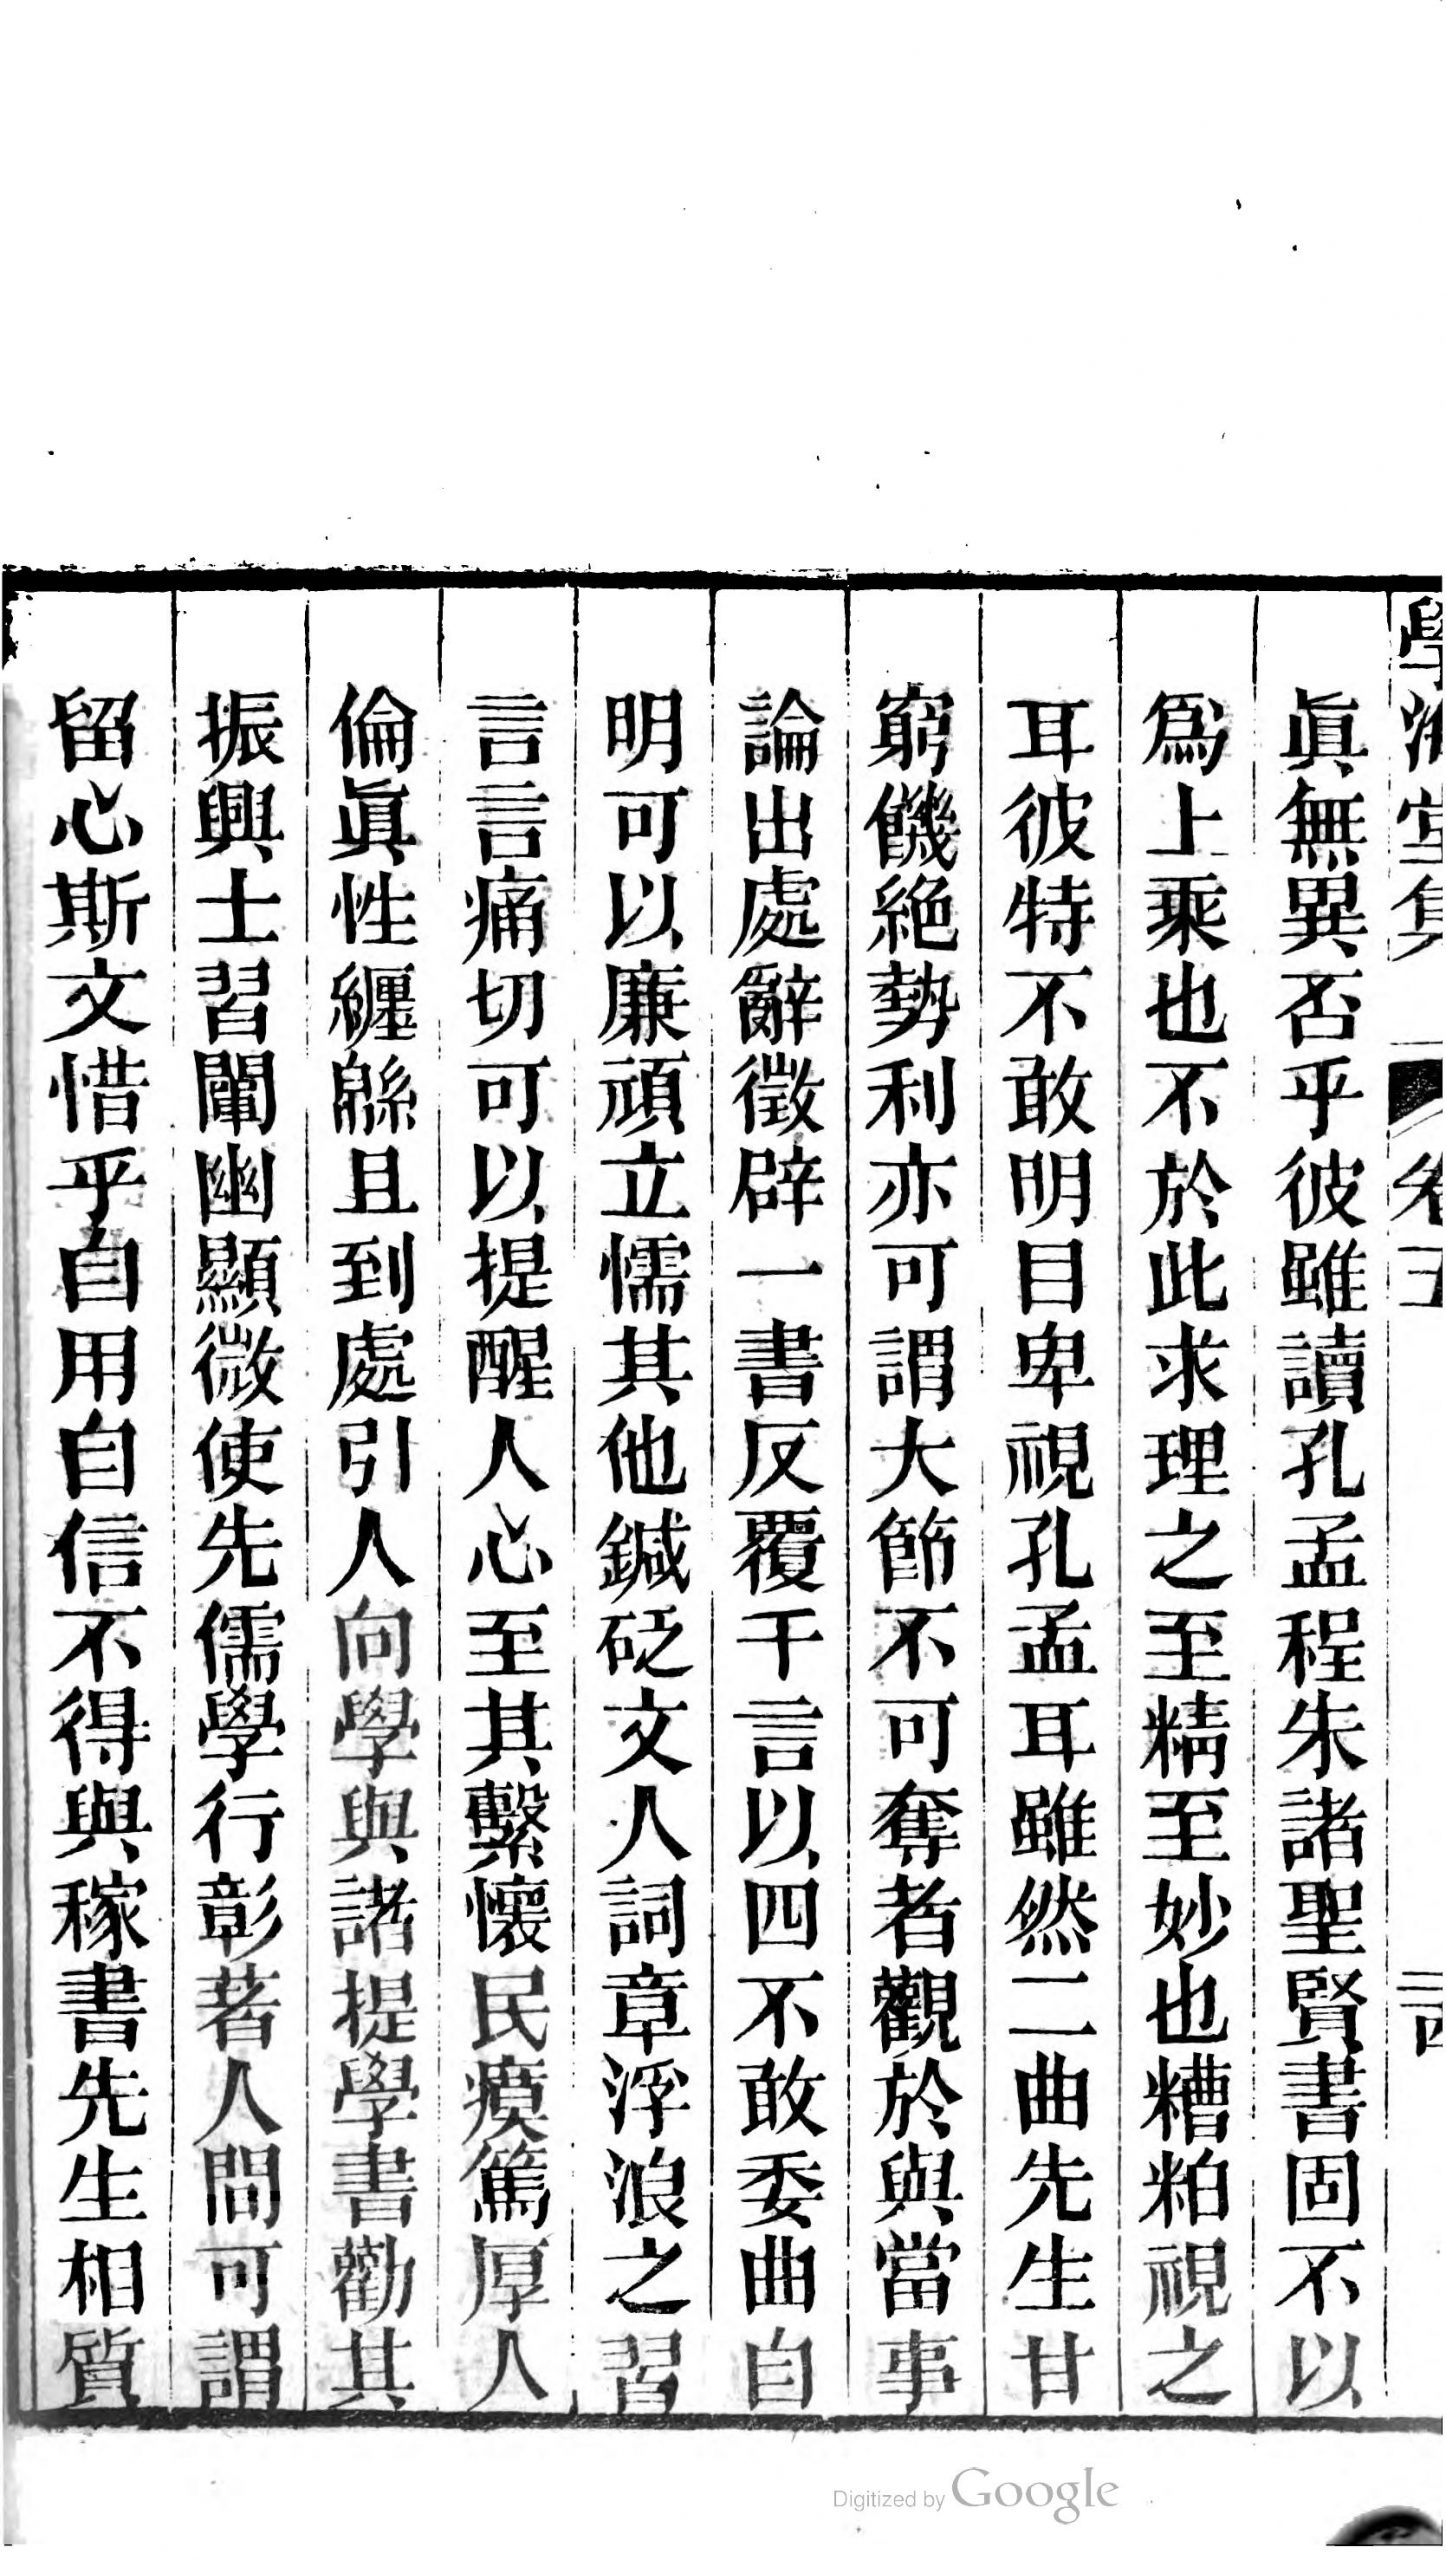 眞無異否乎彼雖讀孔孟程朱諸聖賢書固不以
爲上乘也不於此求理之至精至妙也糟粕視之
耳彼特不敢明目卑視孔孟耳雖然二曲先生甘
窮饑絶勢利亦可謂大節不可奪者觀於與當事
論出處辭徵辟一書反覆千言以四不敢委曲自
明可以廉頑立懦其他鍼砭文人詞章浮浪之習
言言痛切可以提醒人心至其繫懷民瘼篤厚人
倫眞性纒緜且到處引人向學與諸提學書勸其
振興士習闡幽顯微使先儒學行彰著人間可謂
留心斯文惜乎自用自信不得與稼書先生相質
Digitized by Google